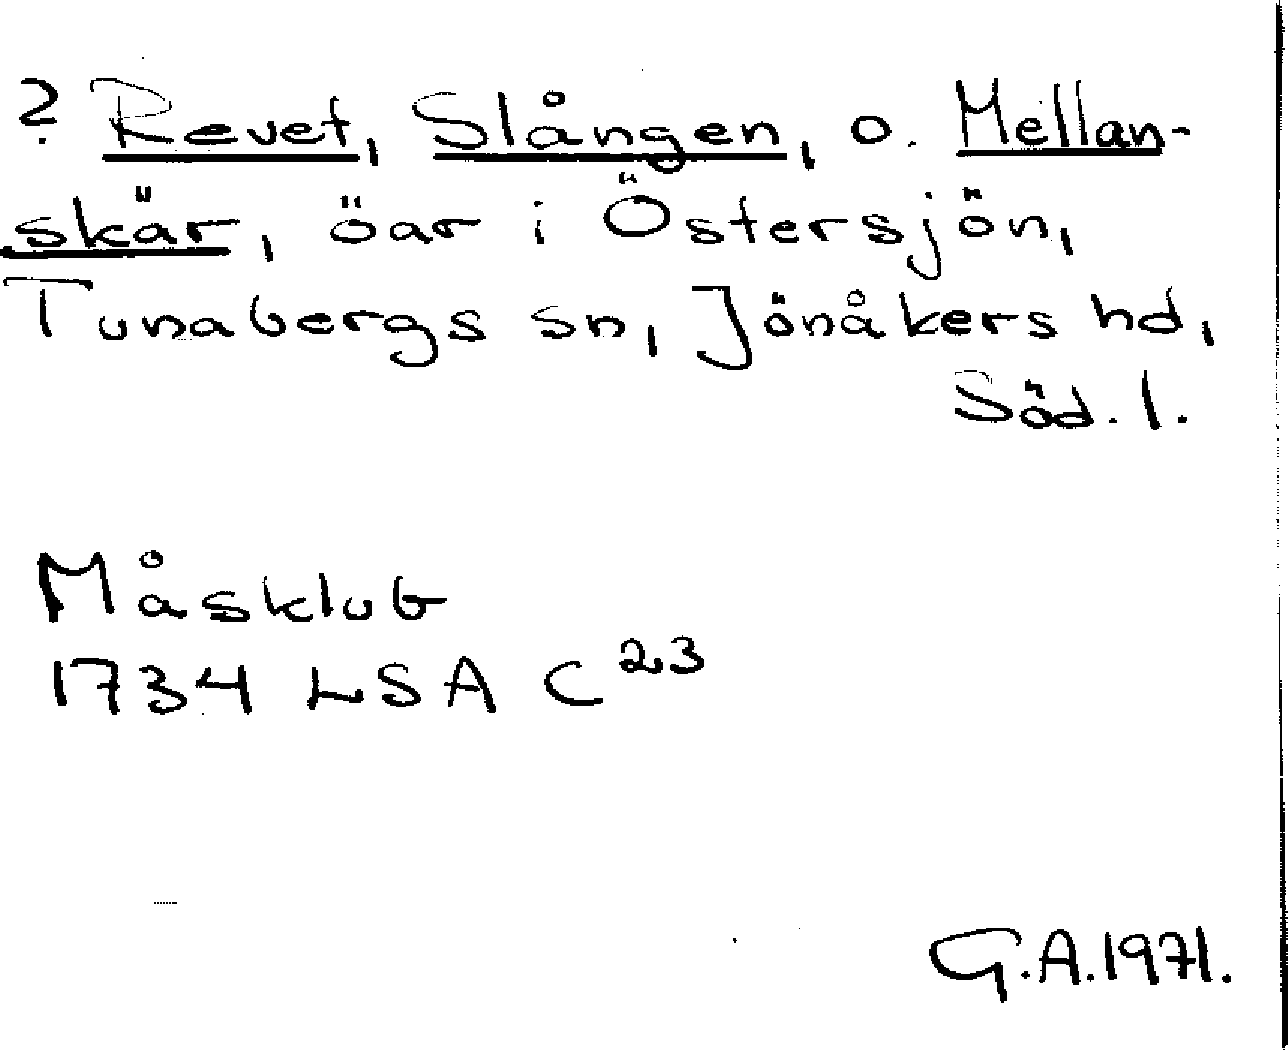 ? Revet, Slången, o. Mellan-
skär, öar i Östersjön,
Tunabergs sn, Jönåkers hd,
Söd. l.
Måsklub
1734 LSA C²³
G.A. 1971.